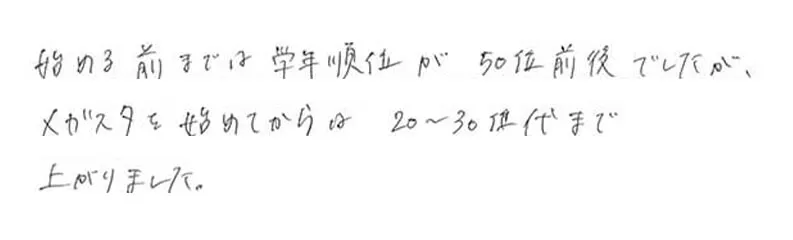 始める前までは学年順位が50位前後でしたが、
メガスタを始めてからは20〜30位代まで
上がりました。